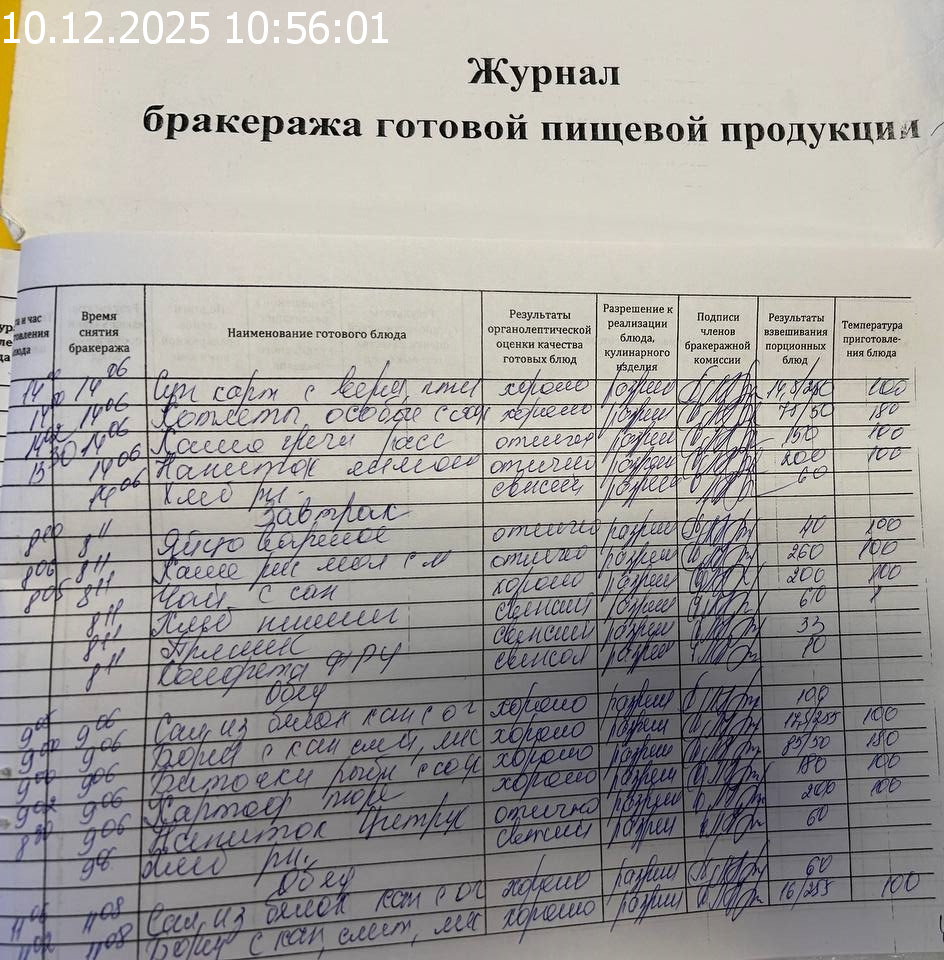 10.12.2025 10:56:01
Журнал
бракеража готовой пищевой продукции
и час Время снятия бракеража Наименование готового блюда Результаты органолептической оценки качества готовых блюд Разрешение к реализации блюда, кулинарного изделия Подписи членов бракеражной комиссии Результаты взвешивания порционных блюд Температура приготовле-ния блюда
14 14 06 Суп карт с хорошо разреш 100
14 06 Котлеты особые с хорошо разреш 75/50 180
14 06 Каша греч расс отлично разреш 150 100
14 06 Напиток отлично разреш 200 100
14 06 Хлеб рж. свежий разреш 60
Завтрак
8 00 8 11 Яйцо вареное отлично разреш 40 100
8 06 8 11 Каша мол с м отлично разреш 260 100
8 05 8 11 Чай с сах хорошо разреш 200 100
8 11 Хлеб пшенич свежий разреш 60
8 11 Пряник свежий разреш 33
8 11 Конфета фру разреш
Обед
9 05 9 06 Сал из белок кап с ог хорошо разреш 100
9 06 Борщ с кап смет, мяс хорошо разреш 175/255 100
9 00 9 06 Биточки рыбн с хорошо разреш 85/50 180
9 06 Картоф пюре хорошо разреш 180 100
9 06 Напиток Цитрус отлично разреш 200 100
Хлеб рж. свежий разреш 60
Обед
11 08 Сал из белок кап с ог хорошо разреш 60
11 02 11 08 Борщ с кап, смет, мяс хорошо разреш 16/255 100